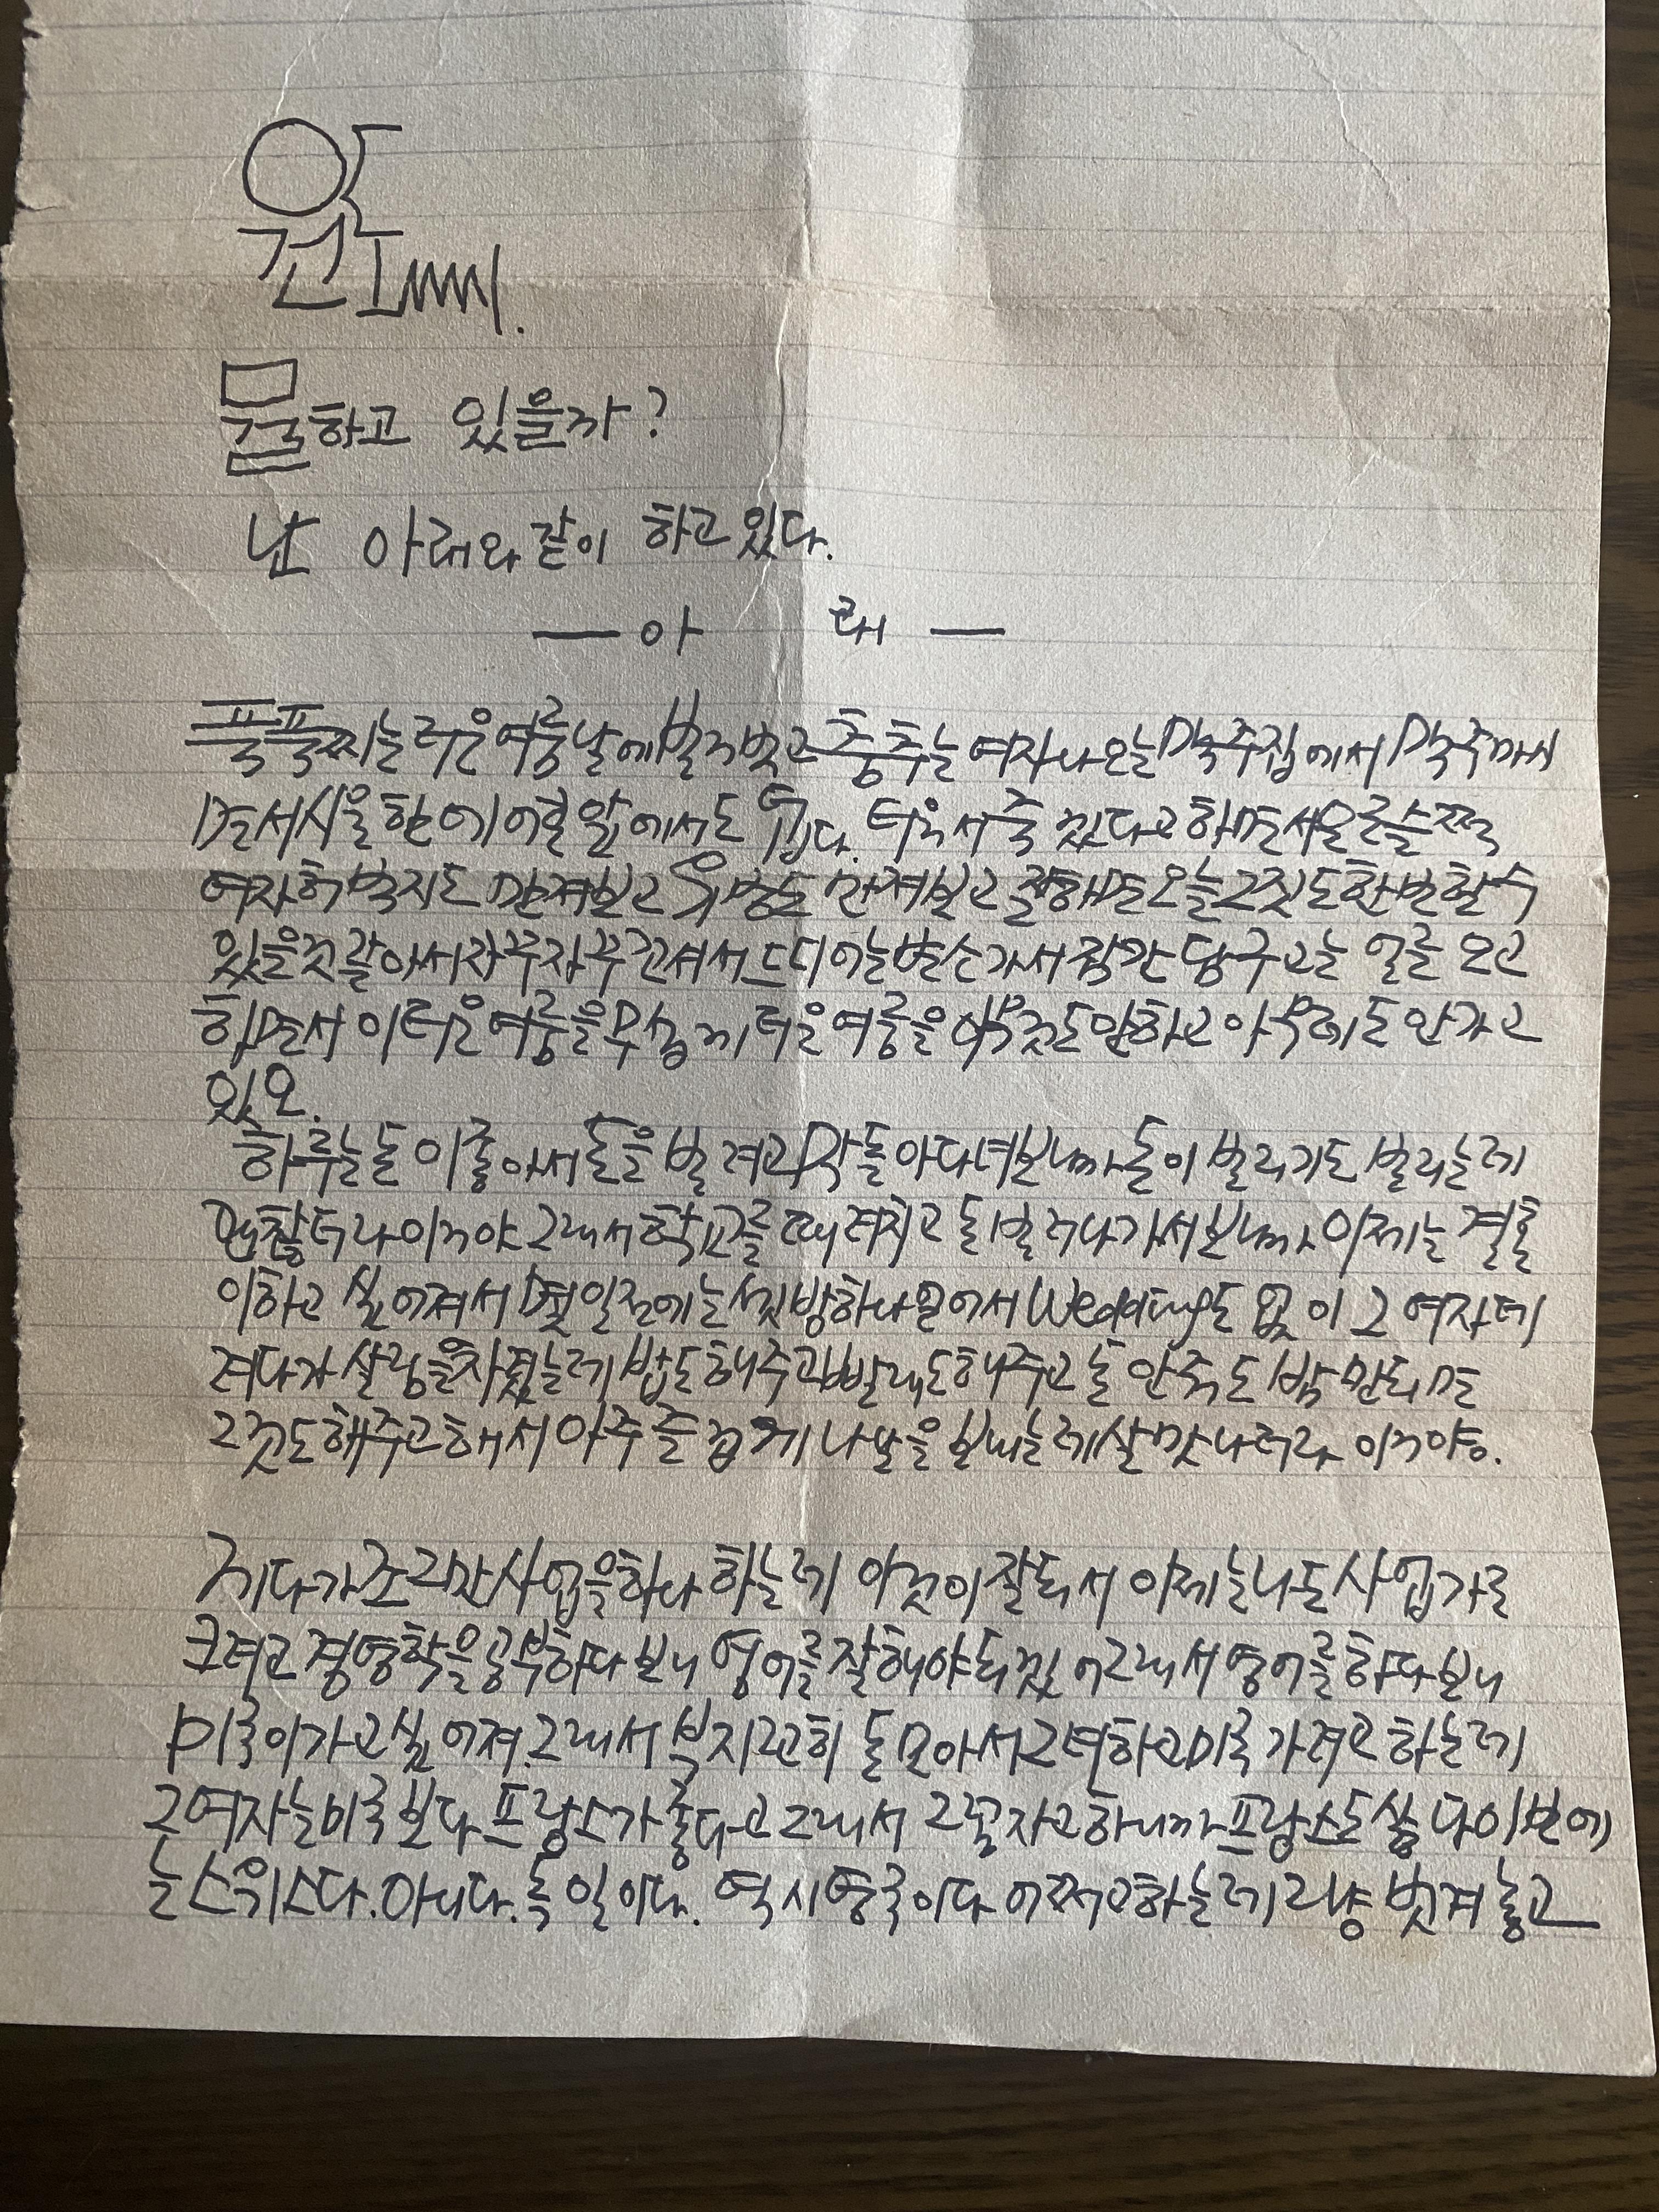 뭘하고 있을까?
난 아래와 같이 하고 있다.
— 아 래 —
푹푹찌는 더운여름날에 벌거벗고 춤추는 여자나오는 맥주집에서 맥주마시
면서 시원한 에어콘 앞에서도 덥다. 더워서 죽겠다고 하면서 은근슬쩍
여자허벅지도 만져보고 유방도 만져보고 잘하면 오늘 그짓도 한번 할 수
있을것 같아서 자꾸자꾸 꼬셔서 드디어는 변소가서 잠간 담구고는 일을 보고
하면서 이 더운여름을 무섭게 더운여름을 아무것도 안하고 아무데도 안가고
있오.
하루는 돈이 좋아서 돈을 벌려고 막 돌아다녀보니까 돈이 벌리기도 벌리는데
괜찮더라 이거야 그래서 학교를 때려치고 돈 벌러 나가서보니까 이제는 결혼
이 하고 싶어져서 몇일전에는 셋방하나 얻어서 Wedding도 없이 그 여자 데
려다가 살림을 차렸는데 밥도 해주고 빨래도 해주고 돈 안줘도 밤만되면
그것도 해주고 해서 아주 즐겁게 나날을 보내는데 살맛나더라 이거야.
게다가 조그만 사업을 하나 하는데 이것이 잘되서 이제는 나도 사업가로
크려고 경영학을 공부하다 보니 영어를 잘해야 되겠어 그래서 영어를 하다보니
미국이 가고싶어져. 그래서 부지런히 돈모아서 그녀하고 미국 가려고 하는데
그여자는 미국보다 프랑스가 좋다고 그래서 그럼 가자고 하니까 프랑스도 싫다 이번에
는 스위스다. 아니다. 독일이다. 역시 영국이다 어쩌고 하는데 그냥 벗겨 놓고